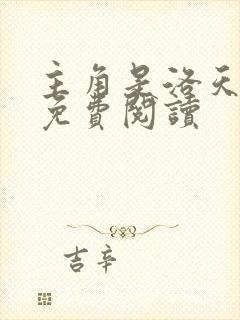 主角是洛天
免費閱讀
吉辛